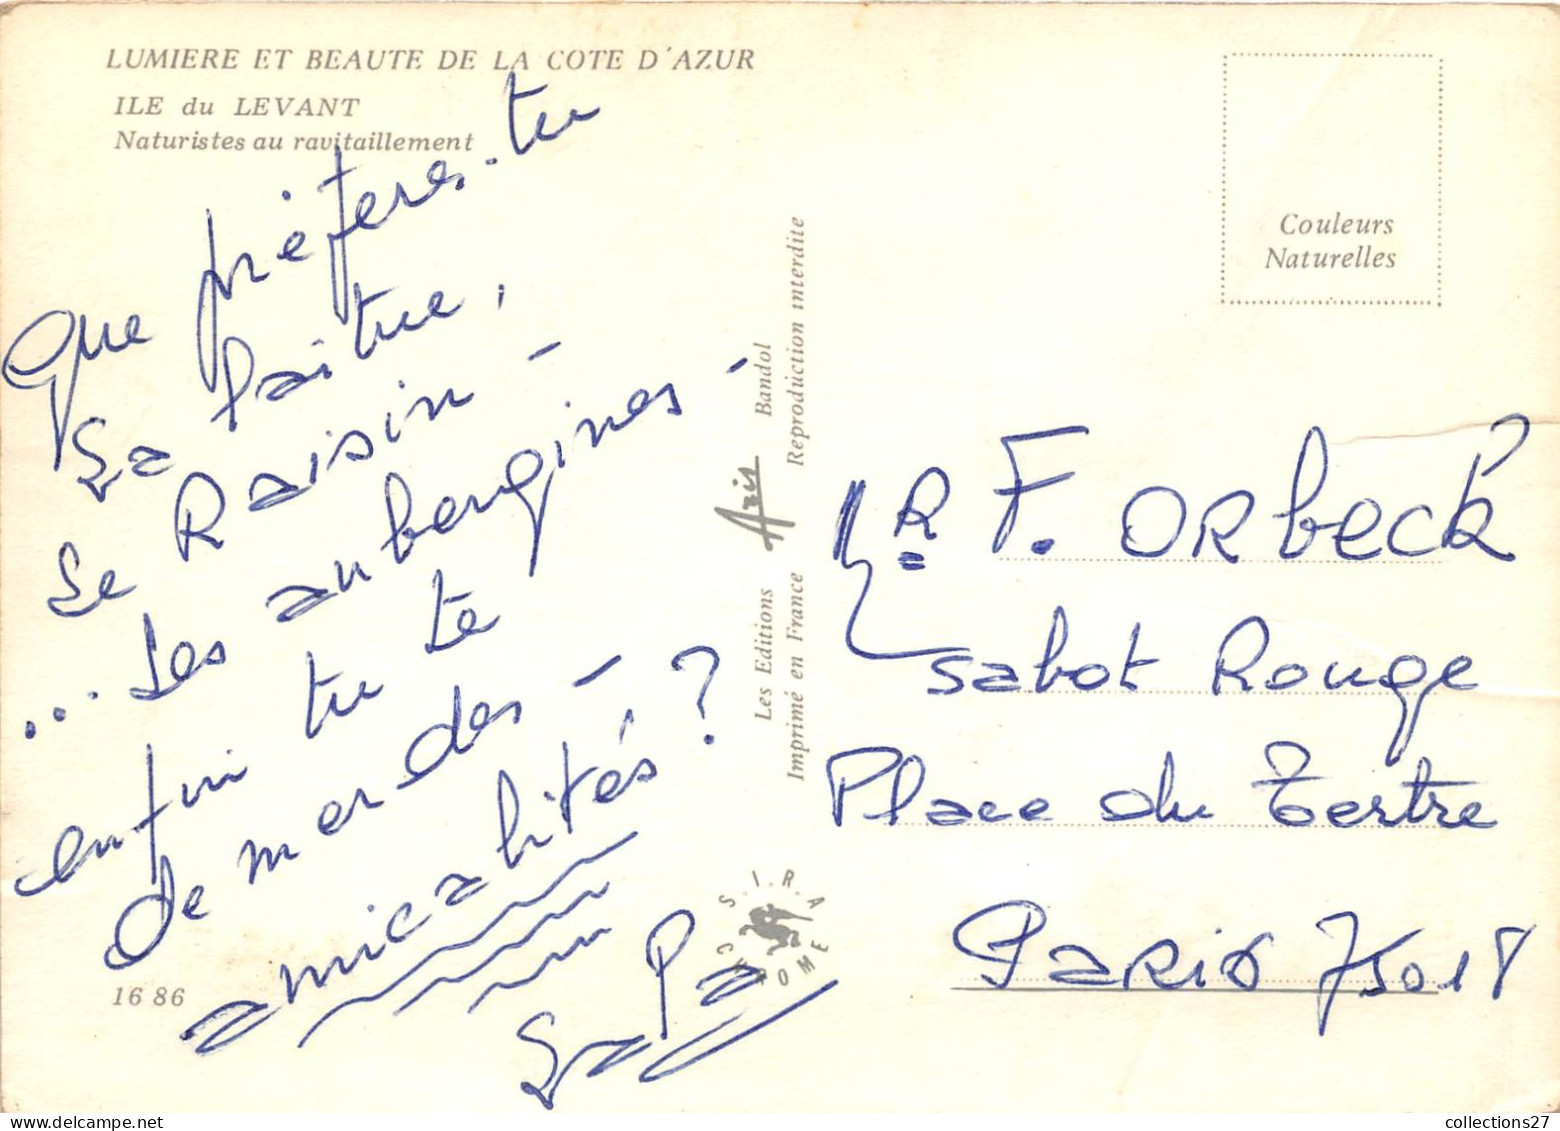 LUMIERE ET BEAUTE DE LA COTE D'AZUR
ILE du LEVANT
Naturistes au ravitaillement
Que préféres-tu
La laitue,
Le Raisin -
... Les aubergines -
enfin tu te
demerdes -
amicalités ?
16 86
Les Editions Aris Bandol
Imprimé en France Reproduction interdite
S.I.R.A
CHROME
Couleurs
Naturelles
F. ORbeck
Sabot Rouge
Place du Tertre
PARIS 75018
collections27